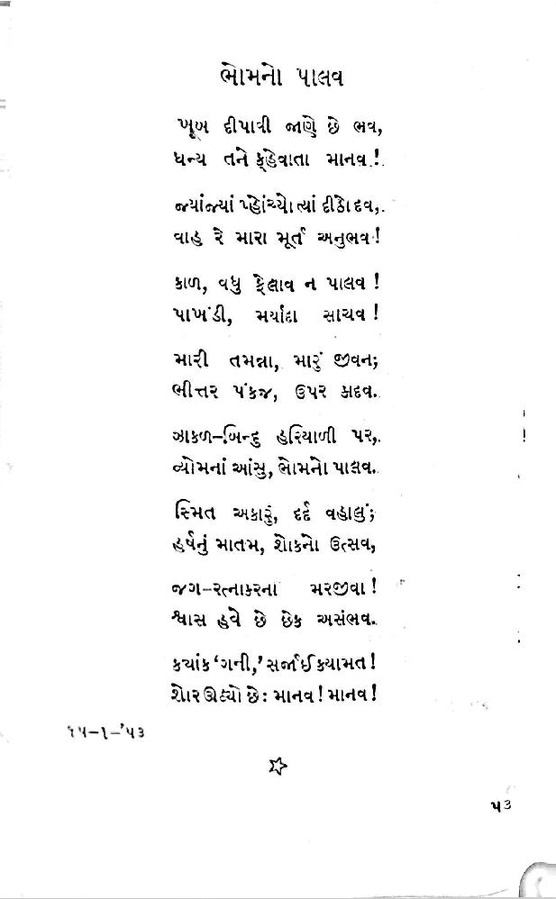 ભોમનો પાલવ
ખૂબ દીપાવી જાણે છે ભવ,
ધન્ય તને કહેવાતા માનવ !
જ્યાંજ્યાં પ્હોંચ્યો ત્યાં દીઠો દવ,
વાહ રે મારા મૂર્ત અનુભવ !
કાળ, વધુ ફેલાવ ન પાલવ !
પાખંડી, મર્યાદા સાચવ !
મારી તમન્ના, મારું જીવન;
ભીત્તર પંકજ, ઉપર કાદવ.
ઝાકળ–બિન્દુ હરિયાળી પર,
વ્યોમનાં આંસુ, ભોમનો પાલવ.
સ્મિત અકારું, દર્દ વહાલું;
હર્ષનું માતમ, શોકનો ઉત્સવ,
જગ–રત્નાકરના મરજીવા !
શ્વાસ હવે છે છેક અસંભવ.
ક્યાંક ‘ગની,’ સર્જાઈ ક્યામત !
શોર ઊઠ્યો છે: માનવ ! માનવ !
૧૫–૧–’૫૩
૫૩